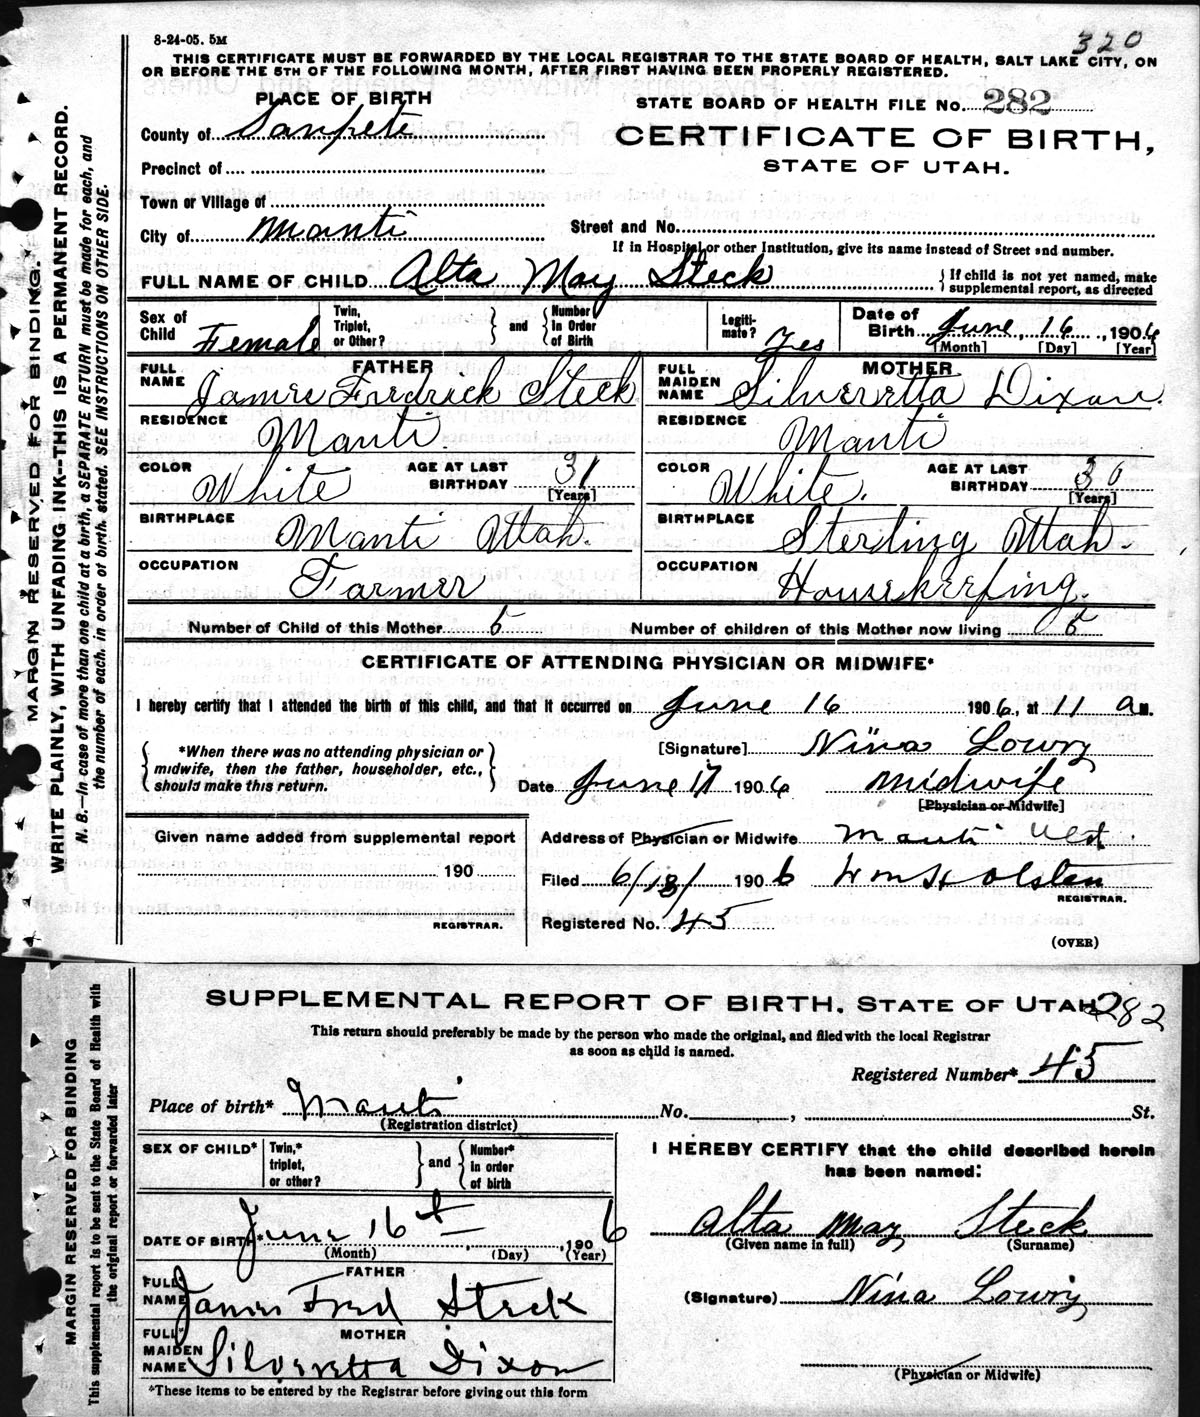 320
8-24-05. 5M
THIS CERTIFICATE MUST BE FORWARDED BY THE LOCAL REGISTRAR TO THE STATE BOARD OF HEALTH, SALT LAKE CITY, ON
OR BEFORE THE 5TH OF THE FOLLOWING MONTH, AFTER FIRST HAVING BEEN PROPERLY REGISTERED.
MARGIN RESERVED FOR BINDING.
WRITE PLAINLY, WITH UNFADING INK--THIS IS A PERMANENT RECORD.
N. B.--In case of more than one child at a birth, a SEPARATE RETURN must be made for each, and
the number of each, in order of birth, stated. SEE INSTRUCTIONS ON OTHER SIDE.
PLACE OF BIRTH
STATE BOARD OF HEALTH FILE No. 282
County of Sanpete
CERTIFICATE OF BIRTH,
STATE OF UTAH.
Precinct of
Town or Village of
City of Manti
Street and No.
If in Hospital or other Institution, give its name instead of Street and number.
FULL NAME OF CHILD Alta May Steck
} If child is not yet named, make
supplemental report, as directed
Sex of Child Female
Twin, Triplet, or Other? } and { Number In Order of Birth
Legiti-mate? Yes
Date of Birth June 16, 1906
[Month] [Day] [Year]
FATHER
FULL NAME James Fredrick Steck
MOTHER
FULL MAIDEN NAME Silveretta Dixon
RESIDENCE Manti
RESIDENCE Manti
COLOR White AGE AT LAST BIRTHDAY 31 [Years]
COLOR White. AGE AT LAST BIRTHDAY 30 [Years]
BIRTHPLACE Manti Utah.
BIRTHPLACE Sterling Utah.
OCCUPATION Farmer
OCCUPATION Housekeeping.
Number of Child of this Mother 5 Number of children of this Mother now living 5
CERTIFICATE OF ATTENDING PHYSICIAN OR MIDWIFE*
I hereby certify that I attended the birth of this child, and that it occurred on June 16 1906, at 11 a M.
{ *When there was no attending physician or
midwife, then the father, householder, etc.,
should make this return. }
[Signature] Nina Lowry
Date June 17 1906 Midwife
[Physician or Midwife]
Given name added from supplemental report
190
REGISTRAR.
Address of Physician or Midwife Manti Utah
Filed 6/18/ 1906 Wm H Olsten
REGISTRAR.
Registered No. 45
(OVER)
MARGIN RESERVED FOR BINDING
This supplemental report is to be sent to the State Board of Health with
the original report or forwarded later
SUPPLEMENTAL REPORT OF BIRTH, STATE OF UTAH 282
This return should preferably be made by the person who made the original, and filed with the local Registrar
as soon as child is named.
Registered Number* 45
Place of birth* Manti No. , St.
(Registration district)
SEX OF CHILD* Twin,* triplet, or other? } and { Number* in order of birth
I HEREBY CERTIFY that the child described herein
has been named:
DATE OF BIRTH* June 16th, 1906
(Month) (Day) (Year)
Alta May Steck
(Given name in full) (Surname)
FATHER
FULL* NAME James Fred Steck
(Signature) Nina Lowry
MOTHER
FULL* MAIDEN NAME Silveretta Dixon
(Physician or Midwife)
*These items to be entered by the Registrar before giving out this form